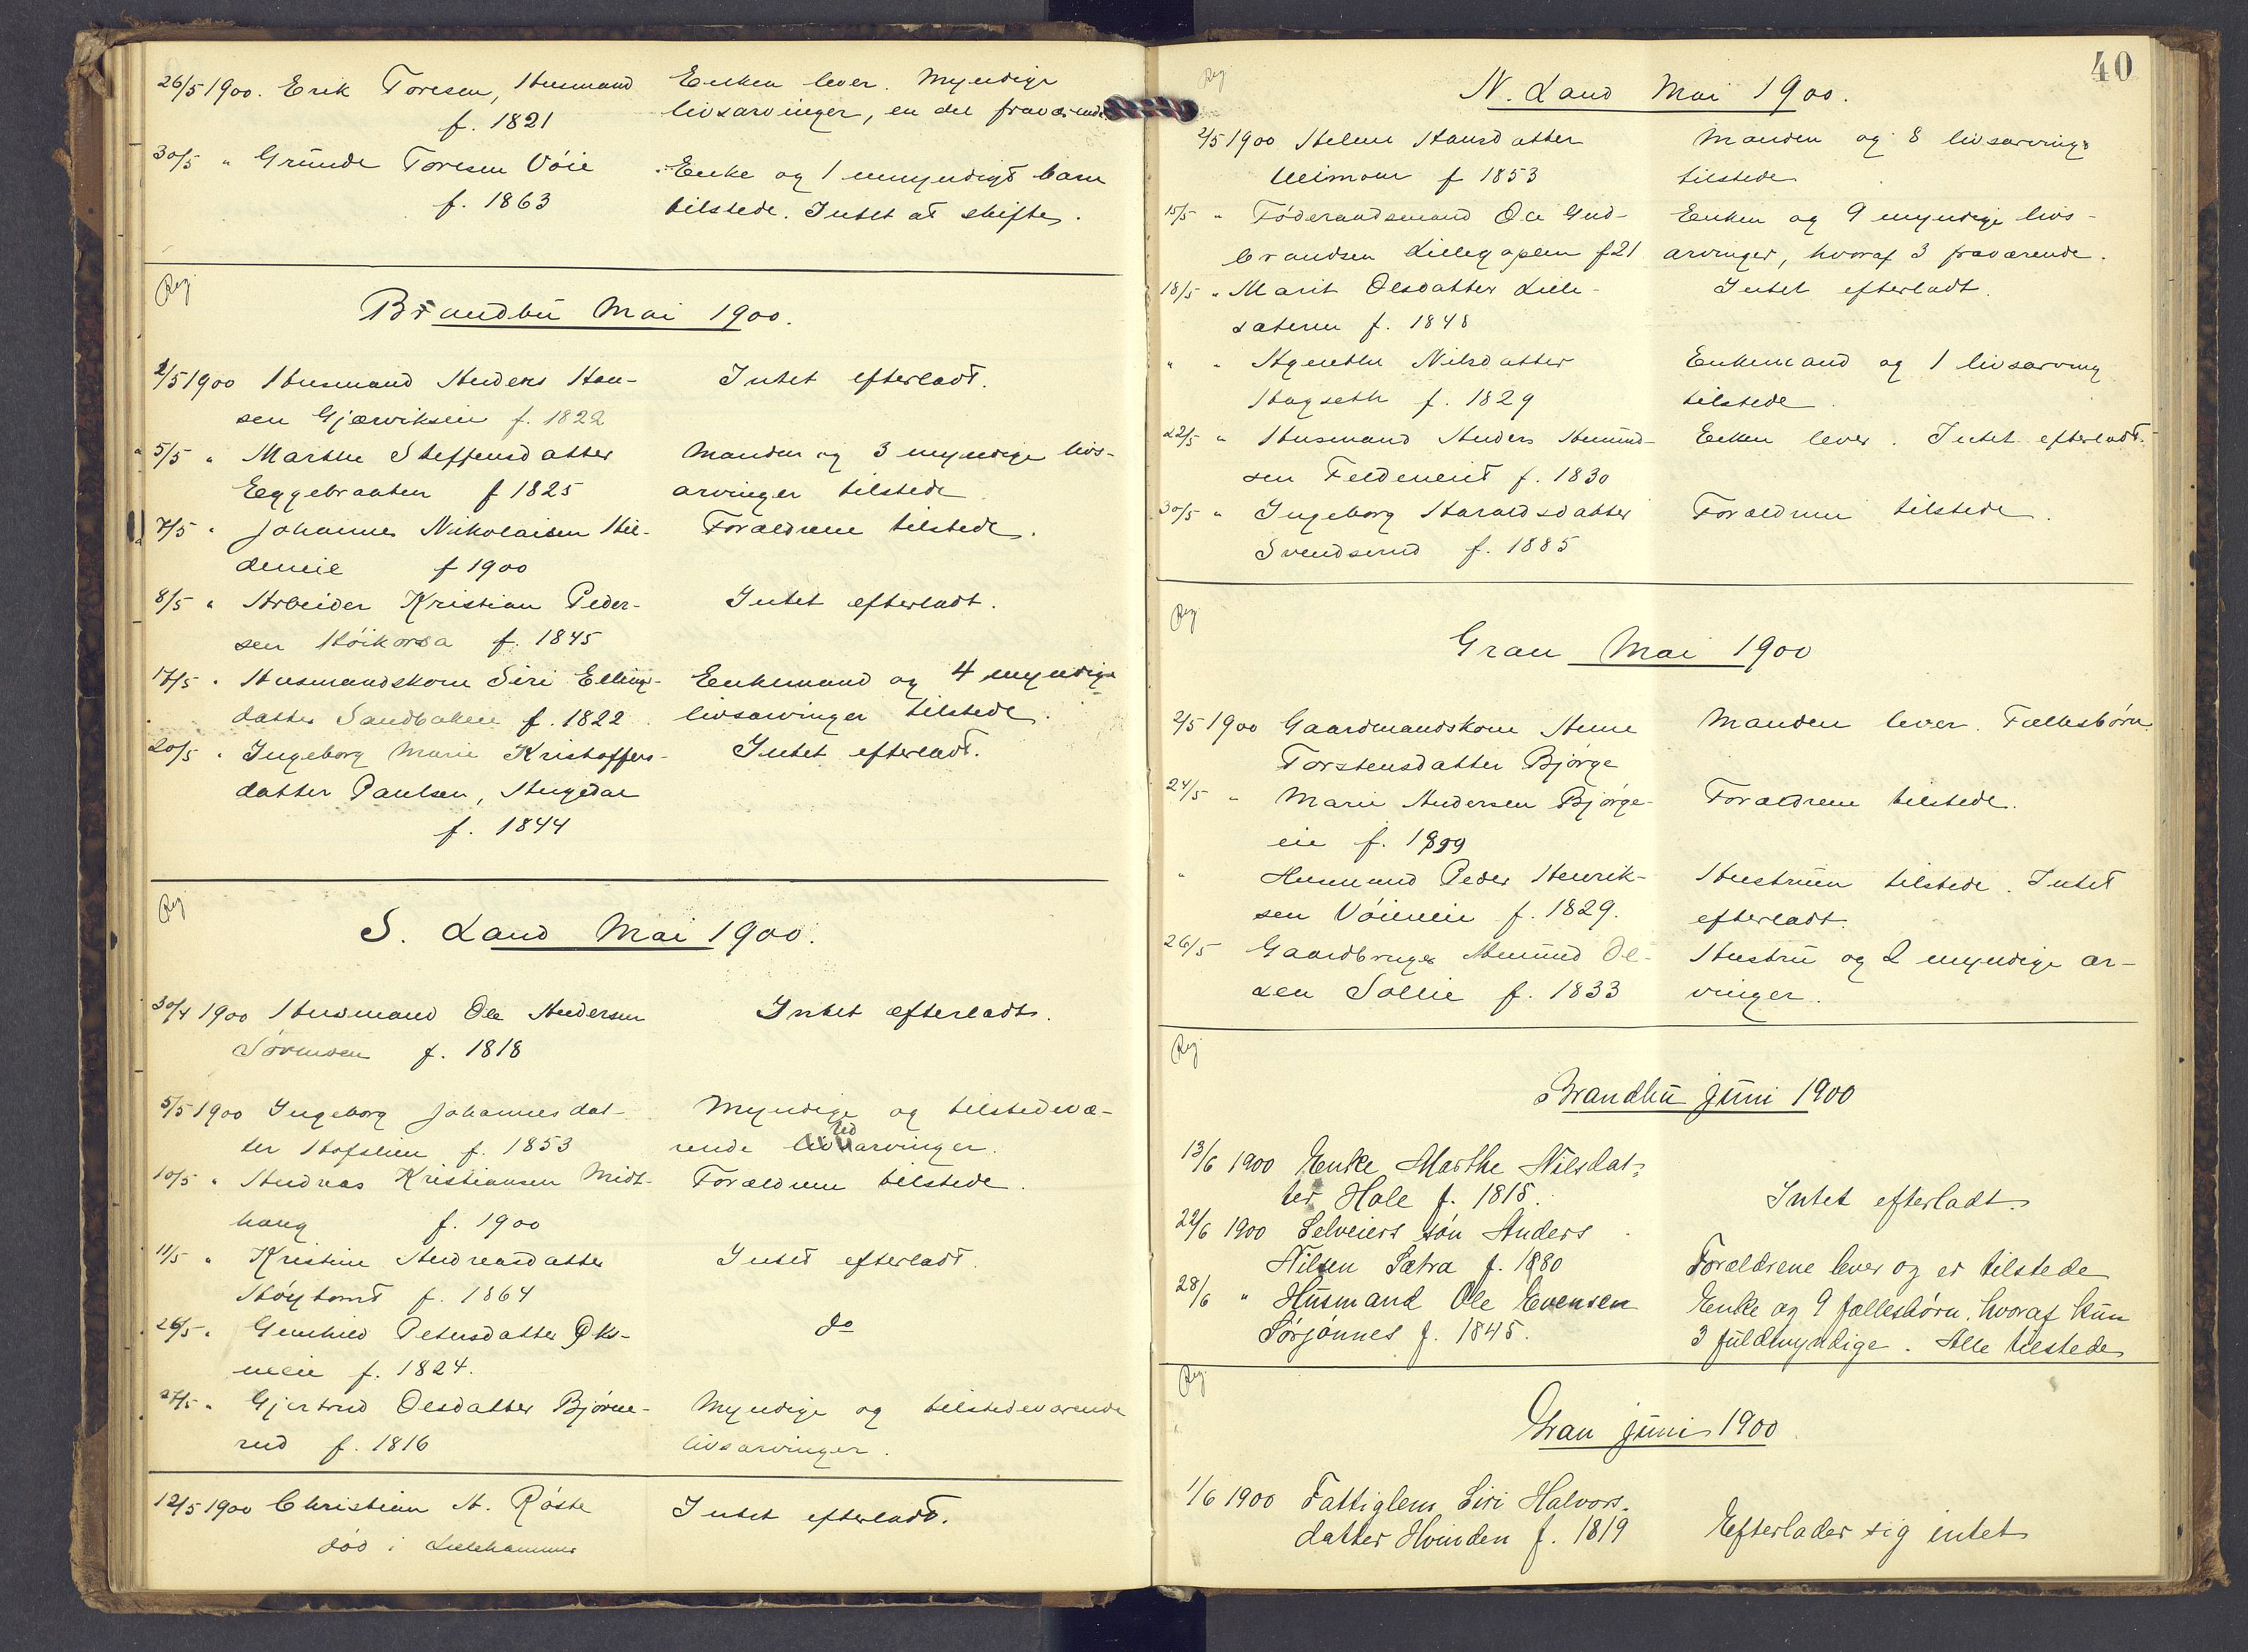 26/5 1900. Erik Toresen, Husmand Enken lever. Myndige
f. 1821 livsarvinger, en del fraværende.
30/5 " Grunde Toresen Vøie Enke og 1 umyndigt barn
f. 1863 tilstede. Intet at skifte.
Reg
Brandbu Mai 1900.
2/5 1900 Husmand Anders Han- Intet efterladt.
sen Gjærviksein f. 1822
5/5 " Marthe Steffensdatter Manden og 3 myndige livs-
Eggebraaten f 1825 arvinger tilstede
7/5 " Johannes Nikolaisen Hil- Forældrene tilstede.
deneie f 1900
8/5 " Arbeider Kristian Peder- Intet efterladt.
sen Høikorsa f. 1845
17/5 " Husmandskone Siri Ellings- Enkemand og 4 myndige
datter Sandbakken f. 1822 livsarvinger tilstede.
20/5 " Ingeborg Marie Kristoffers- Intet efterladt.
datter Paulsen, Augedal
f. 1844
Reg
S. Land Mai 1900.
30/4 1900 Husmand Ole Andersen Intet efterladt.
Sørumsen f. 1818
5/5 1900 Ingeborg Johannesdat- Myndige og tilstedevæ-
ter Hofslien f. 1853 rende Ud arvinger.
10/5 " Andreas Kristiansen Midt- Forældrene tilstede.
haug f. 1900
11/5 " Kristine Andreasdatter Intet efterladt.
Høytomt f. 1864
26/5 " Gunhild Petersdatter Øks- do
neie f. 1824.
27/5 " Gjertrud Olsdatter Bjørne- Myndige og tilstedeværende
rud f. 1816 livsarvinger.
12/5 1900 Christian A. Røste Intet efterladt.
død i Lillehammer
40
Reg
N. Land Mai 1900.
2/5 1900 Helene Hansdatter Manden og 8 livsarving.
f 1853 tilstede
15/5 " Føderaadsmand Ole Gud- Enken og 9 myndige livs-
brandsen f 21 arvinger, hvoraf 3 fraværende.
18/5 " Marit Olsdatter Lille- Intet efterladt.
sæteren f. 1848
" " Agnethe Nilsdatter Enkemand og 1 livsarving
Hagseth f. 1829 tilstede.
22/5 " Husmand Anders Amund- Enken lever. Intet efterladt.
sen f. 1830
30/5 " Ingeborg Haraldsdatter Forældrene tilstede.
Svendsrud f. 1885
Reg
Gran Mai 1900
2/5 1900 Gaardmandskone Anne Manden lever. Fællesbørn.
Torstensdatter Bjørge
24/5 " Marie Andersen Bjørge- Forældrene tilstede.
eie f. 1899
" Husmand Peder Henrik- Hustruen tilstede. Intet
sen Vøieneie f. 1829. efterladt.
26/5 Gaardbruger Amund Ol- Hustru og 2 myndige ar-
sen Sollie f. 1833 vinger.
Reg
Brandbu Juni 1900
13/6 1900 Enke Marthe Nilsdat-
ter Hole f. 1815. Intet efterladt.
22/6 1900 Selveiers søn Anders
Nilsen Sætra f. 1880 Forældrene lever og er tilstede
28/6 " Husmand Ole Evensen Enke og 9 fællesbørn, hvoraf kun
Sørjønnes f. 1845. 3 fuldmyndige. Alle tilstede
Reg
Gran Juni 1900
1/6 1900 Fattiglem Siri Halvors-
datter Hvinden f. 1819 Efterlader sig intet